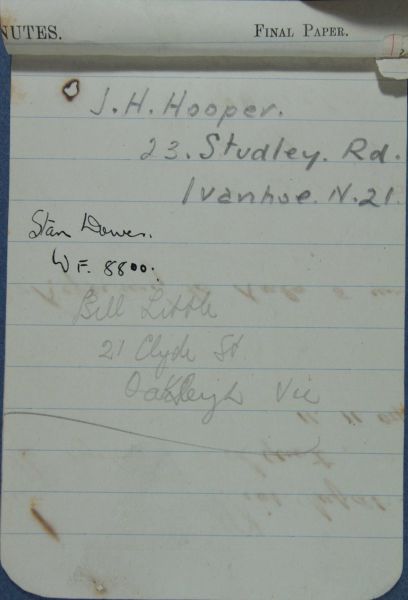 NUTES. FINAL PAPER.
J. H. Hooper.
23. Studley. Rd.
Ivanhoe. N.21.
Stan Dowes.
W F. 8800.
Bill Little
21 Clyde St
Oakleigh Vic